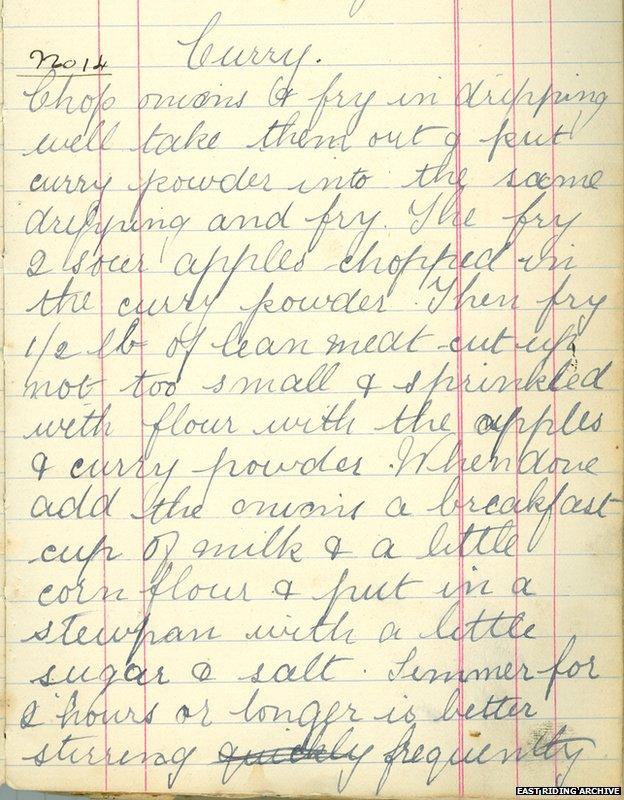 No 14
Curry.
Chop onions & fry in dripping
well take them out & put
curry powder into the same
dripping and fry. The fry
2 sour apples chopped in
the curry powder. Then fry
1/2 lb of lean meat cut up
not too small & sprinkled
with flour with the apples
& curry powder. When done
add the onions a breakfast
cup of milk & a little
corn flour & put in a
stewpan with a little
sugar & salt. Simmer for
2 hours or longer is better
stirring quickly frequently
EAST RIDING ARCHIVE